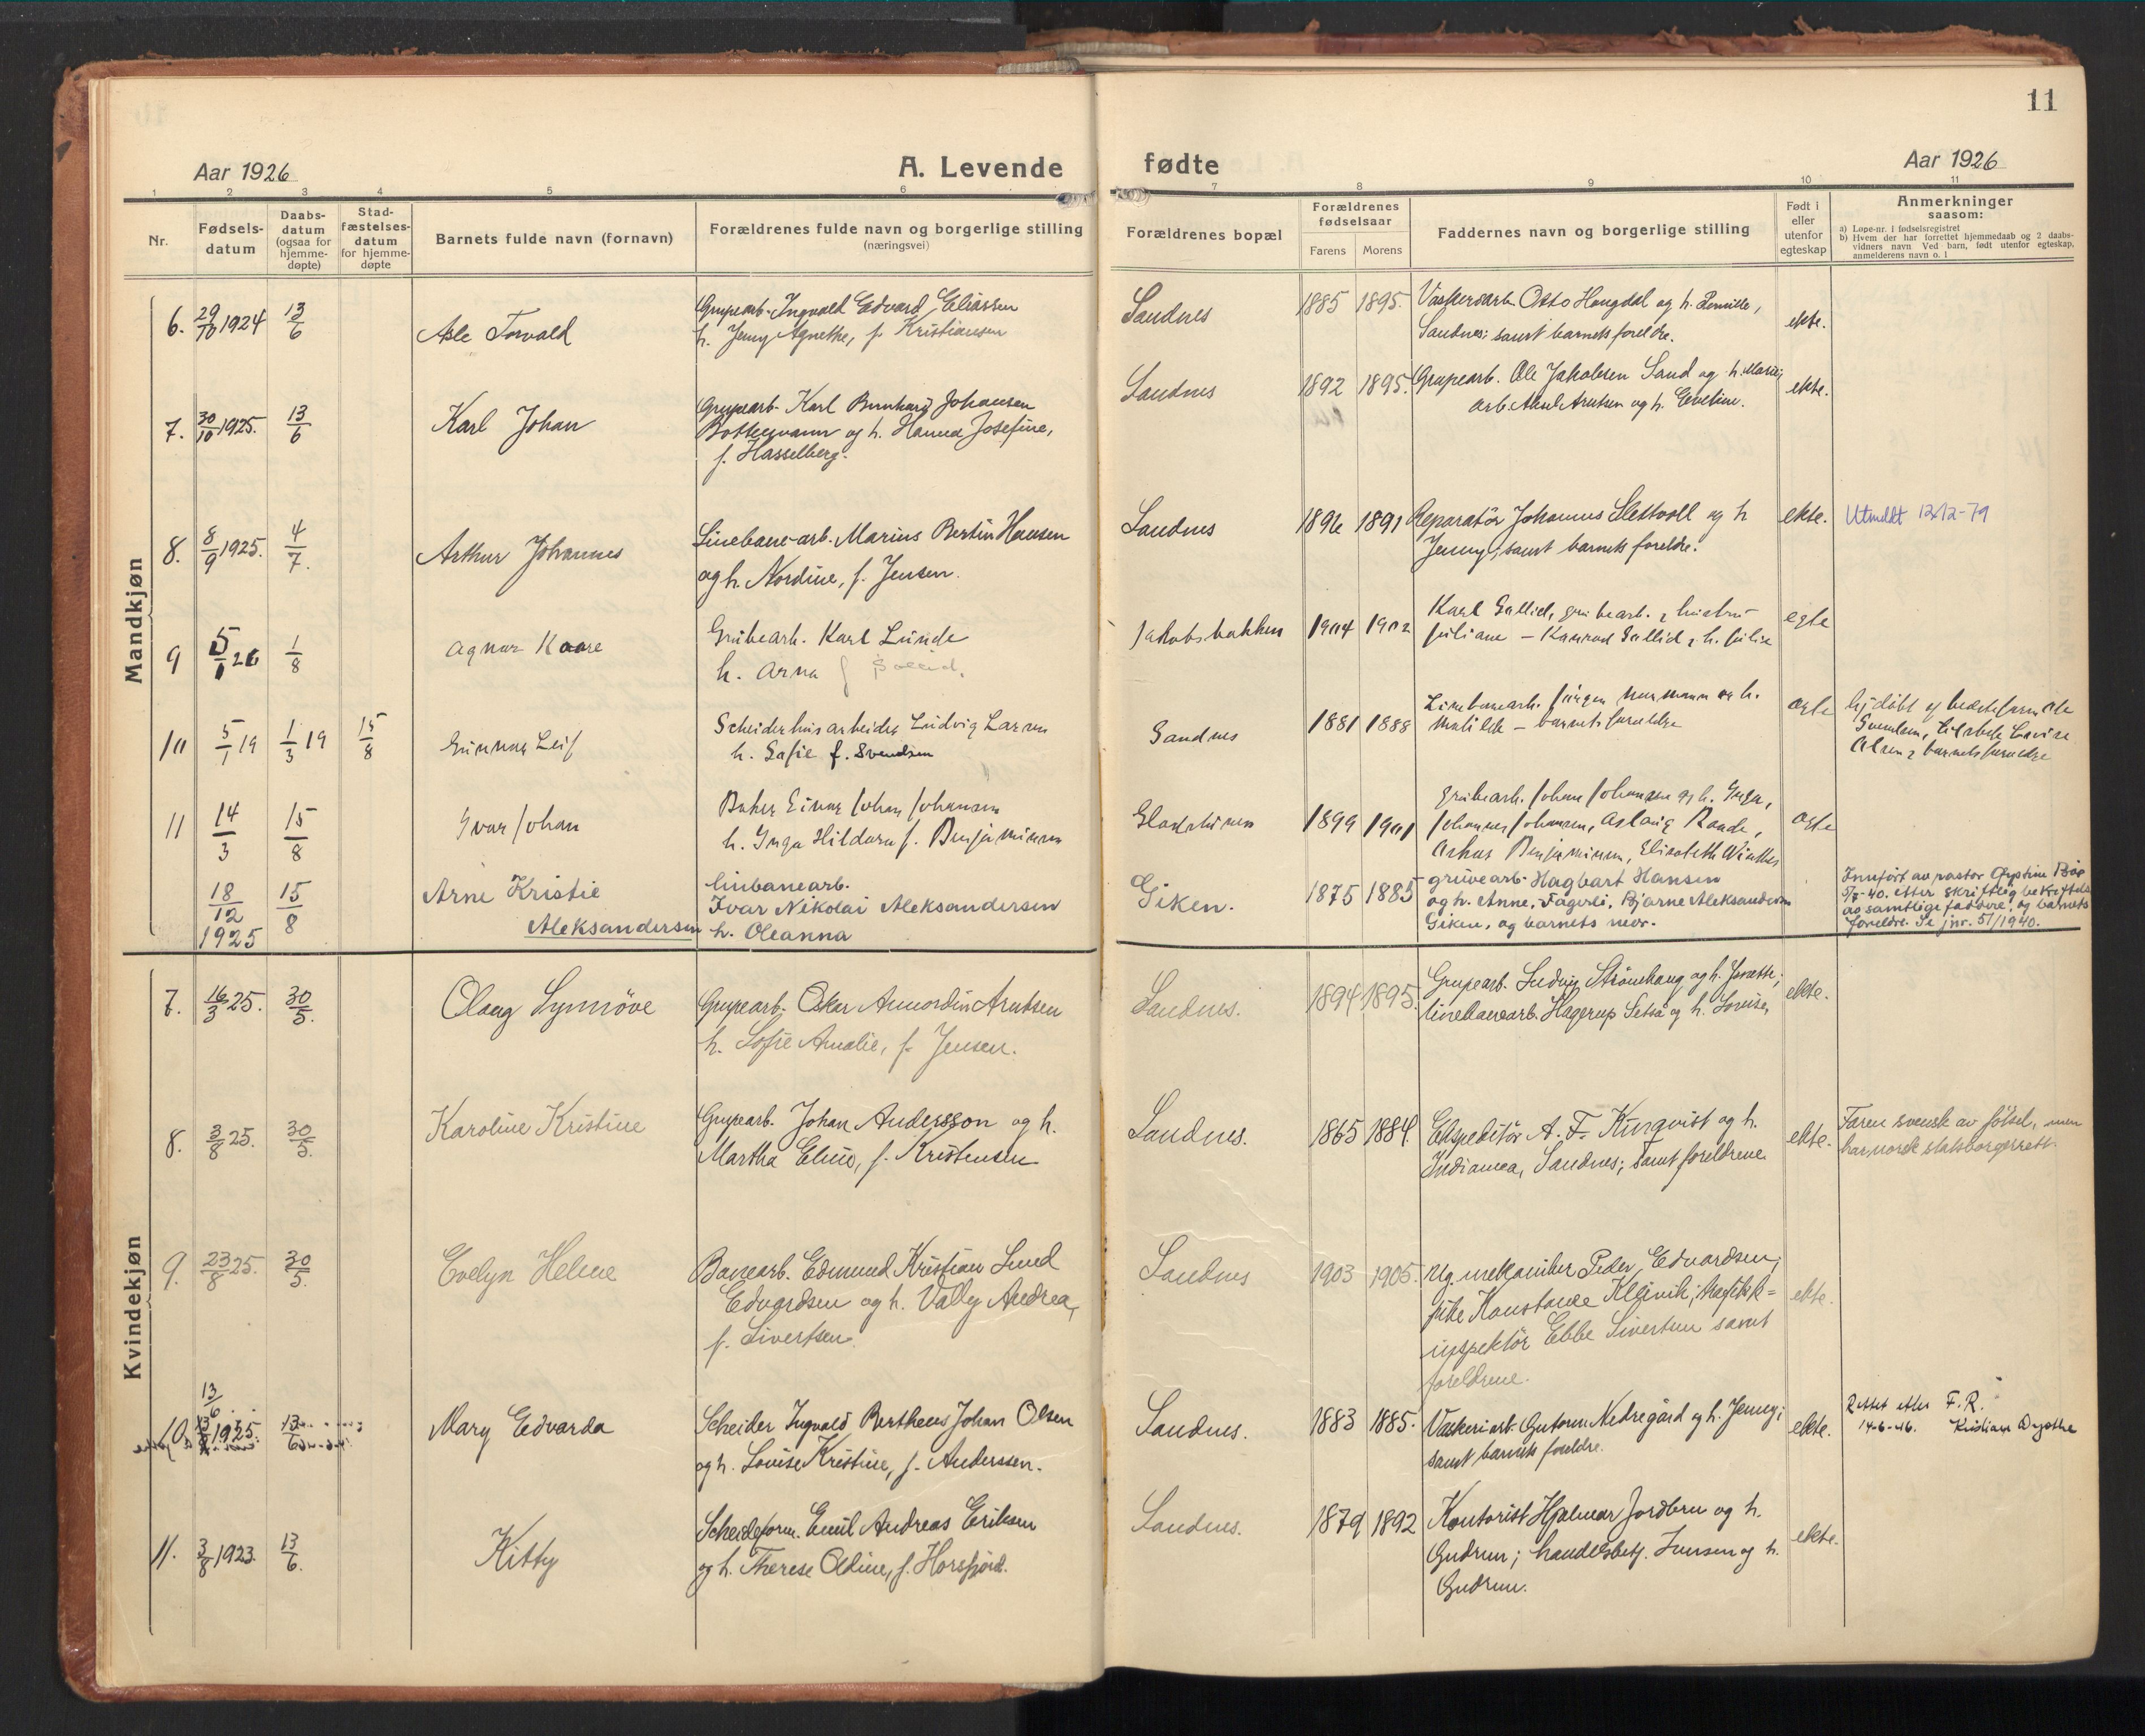 11
Aar 1926
A. Levende
fødte
Aar 1926
1 2 3 4 5 6 7 8 9 10 11
Nr.
Fødsels-
datum
Daabs-
datum
(ogsaa for
hjemme-
døpte)
Stad-
fæstelses-
datum
for hjemme-
døpte
Barnets fulde navn (fornavn)
Forældrenes fulde navn og borgerlige stilling
(næringsvei)
Forældrenes bopæl
Forældrenes
fødselsaar
Farens Morens
Faddernes navn og borgerlige stilling
Født i
eller
utenfor
egteskap
Anmerkninger
saasom:
a) Løpe-nr. i fødselsregistret
b) Hvem der har forrettet hjemmedaab og 2 daabs-
vidners navn Ved barn, født utenfor egteskap,
anmelderens navn o. l
Mandkjøn
6. 29/10 1924 13/6
Asle Torvald
Grupearb. Ingvald Edvard Eliassen
h. Jenny Agnethe, f. Kristiansen
Sandnes
1885 1895.
Vaskeriarb. Otto Haugdal og h.
Sandnes; samt barnets foreldre.
ekte.
7. 30/10 1925. 13/6
Karl Johan
Grupearb. Karl Bernhard Johansen
Bottenvann og h. Hanna Josefine,
f. Hasselberg.
Sandnes
1892 1895.
Grupearb. Ole Jakobsen Sand og h. Marie;
arb. Aksel Arntsen og h. Eveline.
ekte.
8. 8/9 1925. 4/7.
Arthur Johannes
Linebane-arb. Marius Bertin Hansen
og h. Nordine, f. Jensen.
Sandnes
1896 1891
Reparatör Johannes Slettvoll og h
Jenny; samt barnets foreldre.
ekte.
Utmeldt 12/12-79
9 5/1 26 1/8
Agnar Kaare
Grubearb. Karl Lunde
h. Arna f Sollid.
Jakobsbakken
1904 1902
Karl Sollid, grubearb. & hustru
Juliane – Konrad Sollid & h. Julie
egte
10 5/1 19 1/3 19 15/8
Gunnar Leif
Scheiderhusarbeider Ludvig Larsen
h. Sofie f. Svendsen
Sandnes
1881 1888
Linebanearb. Jörgen Normann og h.
Matilde – barnets forældre
egte
hj.döbt af bedstefar Ole
Svendsen, Elisabeth Lovise
Olsen & barnets forældre
11 14/3 15/8
Ivar Johan
Baker Einar Johan Johansen
h. Inga Hildora f. Benjaminsen
1899 1901
Grubearb. Johan Johansen og h. Inga,
Johannes Johansen, Aslaug Raade,
Arhur Benjaminsen, Elisabeth Winther
egte
18/12 1925 15/8
Arne Kristie
Aleksandersen
linbanearb.
Ivar Nikolai Aleksandersen
h. Oleanna
Giken.
1875 1885
gruvearb. Hagbart Hansen
og h. Anne, Fagerli, Bjarne Aleksandersen
Giken, og barnets mor.
Innfört av pastor Öystein
5/7-40. etter skriftlig bekreftelse
av samtlige faddere, og barnets
foreldre. Se jnr. 51/1940.
Kvindekjøn
7. 16/3 25. 30/5.
Olaug Synnöve
Grupearb. Oskar Annordin Arntsen
h. Sofie Amalie, f. Jensen.
Sandnes.
1894 1895.
Grupearb. Ludvig Strömhaug og h. Jonette;
linebanearb. Hagerup Setså og h. Lovise,
ekte.
8. 3/8 25. 30/5.
Karoline Kristine
Grupearb. Johan Andersson og h.
Martha Elise, f. Kristensen
Sandnes.
1865 1884.
Ekspeditör A. F. Kinqvist og h.
Indianna, Sandnes; samt foreldrene
ekte.
Faren svensk av fötsel, men
har norsk statsborgerrett.
9. 23/8 25. 30/5.
Evelyn Helene
Banearb. Edmund Kristian Lund
Edvardsen og h. Vally Andrea,
f. Sivertsen.
Sandnes
1903 1905.
Ug. mekaniker Peder Edvardsen;
pike Konstanse Kleivik; trafikk-
inspektör Ebbe Sivertsen samt
foreldrene.
ekte.
10. 13/6 1925. 13/6
Mary Edvarda
Scheider Ingvald Bertheus Johan Olsen
og h. Lovise Kristine, f. Anderssen.
Sandnes.
1883 1885.
Vaskeri-arb. Guttorm Nedregård og h. Jenny;
samt barnets foreldre.
ekte.
Rettet etter F. R.
14-6-46. Kristian Dyrøthe
11. 3/8 1923. 13/6.
Kitty
Scheideform. Emil Andreas Eriksen
og h. Therese Oline, f. Horsfjord.
Sandnes.
1879 1892
Kontorist Hjalmar Jordbru og h.
Gudrun; handelsbetj. Iversen og h.
Gudrun.
ekte.